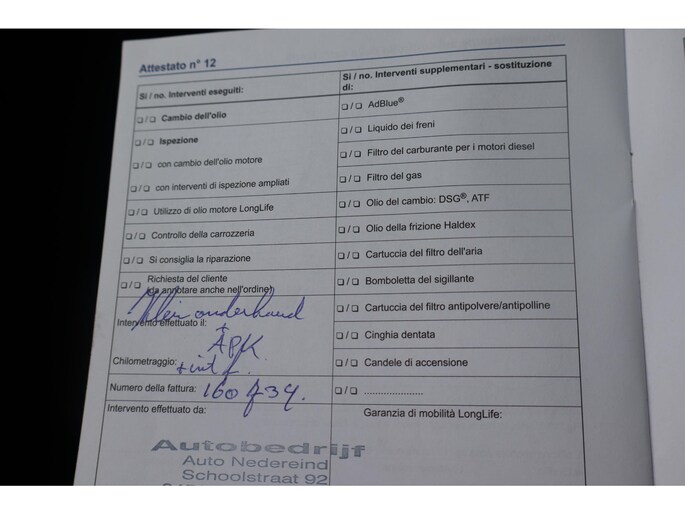 Attestato n° 12
Si / no. Interventi eseguiti:
❏ / ❏ Cambio dell'olio
❏ / ❏ Ispezione
❏ / ❏ con cambio dell'olio motore
❏ / ❏ con interventi di ispezione ampliati
❏ / ❏ Utilizzo di olio motore LongLife
❏ / ❏ Controllo della carrozzeria
❏ / ❏ Si consiglia la riparazione
❏ / ❏ Richiesta del cliente
(da annotare anche nell'ordine)
Klein onderhoud
Intervento effettuato il:
+
APK
Chilometraggio:
Numero della fattura: 160
Intervento effettuato da:
Autobedrijf
Auto Nedereind
Schoolstraat 92
Si / no. Interventi supplementari - sostituzione
di:
❏ / ❏ AdBlue®
❏ / ❏ Liquido dei freni
❏ / ❏ Filtro del carburante per i motori diesel
❏ / ❏ Filtro del gas
❏ / ❏ Olio del cambio: DSG®, ATF
❏ / ❏ Olio della frizione Haldex
❏ / ❏ Cartuccia del filtro dell'aria
❏ / ❏ Bomboletta del sigillante
❏ / ❏ Cartuccia del filtro antipolvere/antipolline
❏ / ❏ Cinghia dentata
❏ / ❏ Candele di accensione
❏ / ❏ .....................
Garanzia di mobilità LongLife: